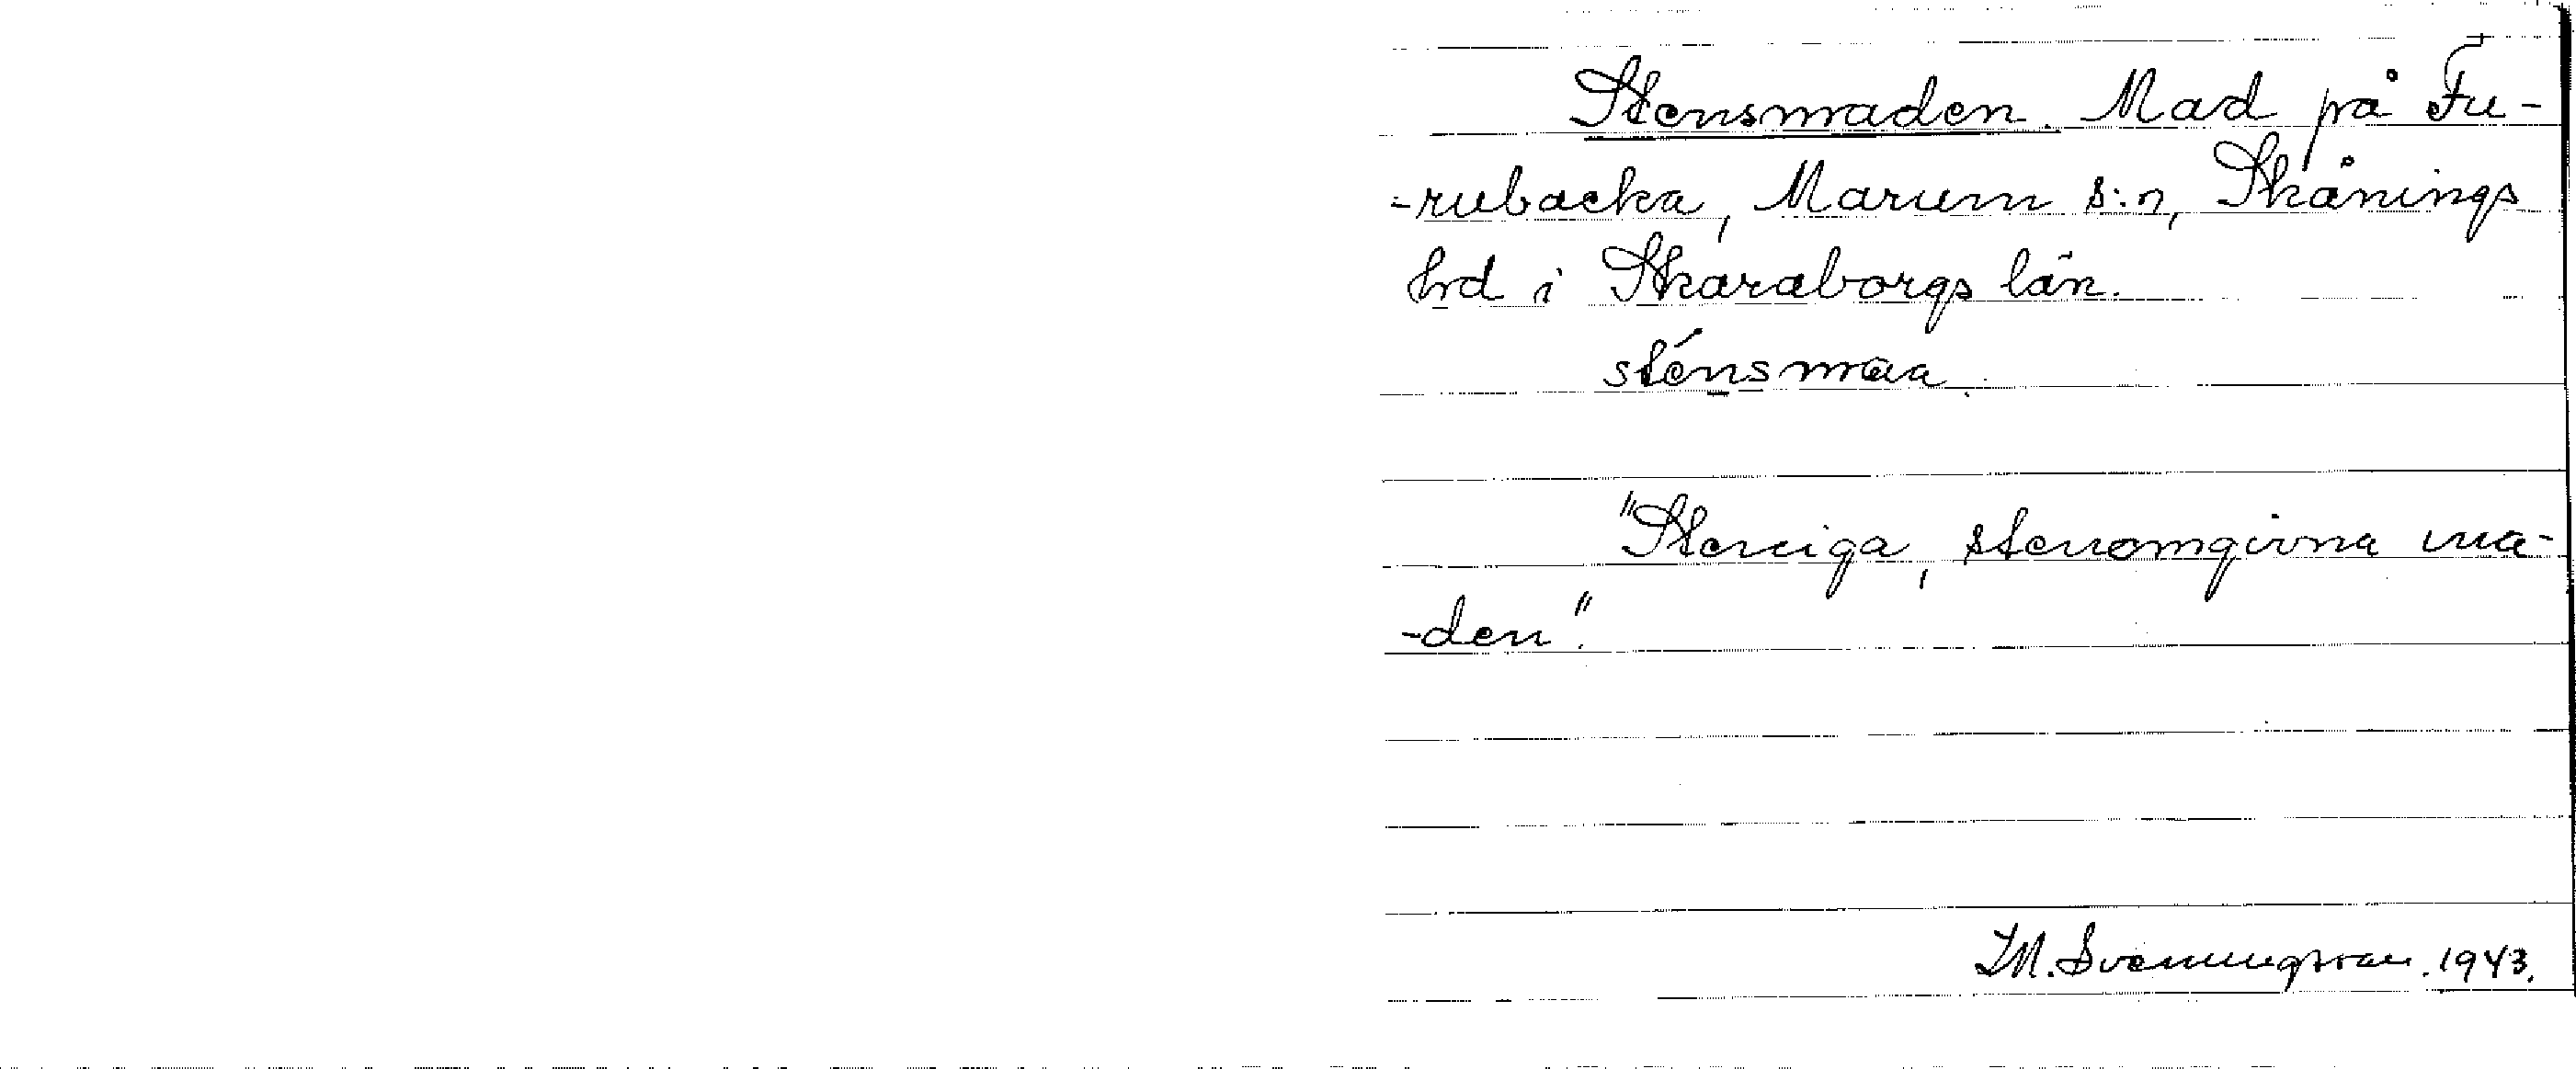 Stensmaden. Mad på Fu-
-rubacka, Marum s:n, Skånings
hd i Skaraborgs län.
sténsmaa.
"Steniga, stenomgivna ma-
-den".
I M. Svenungsson. 1943.